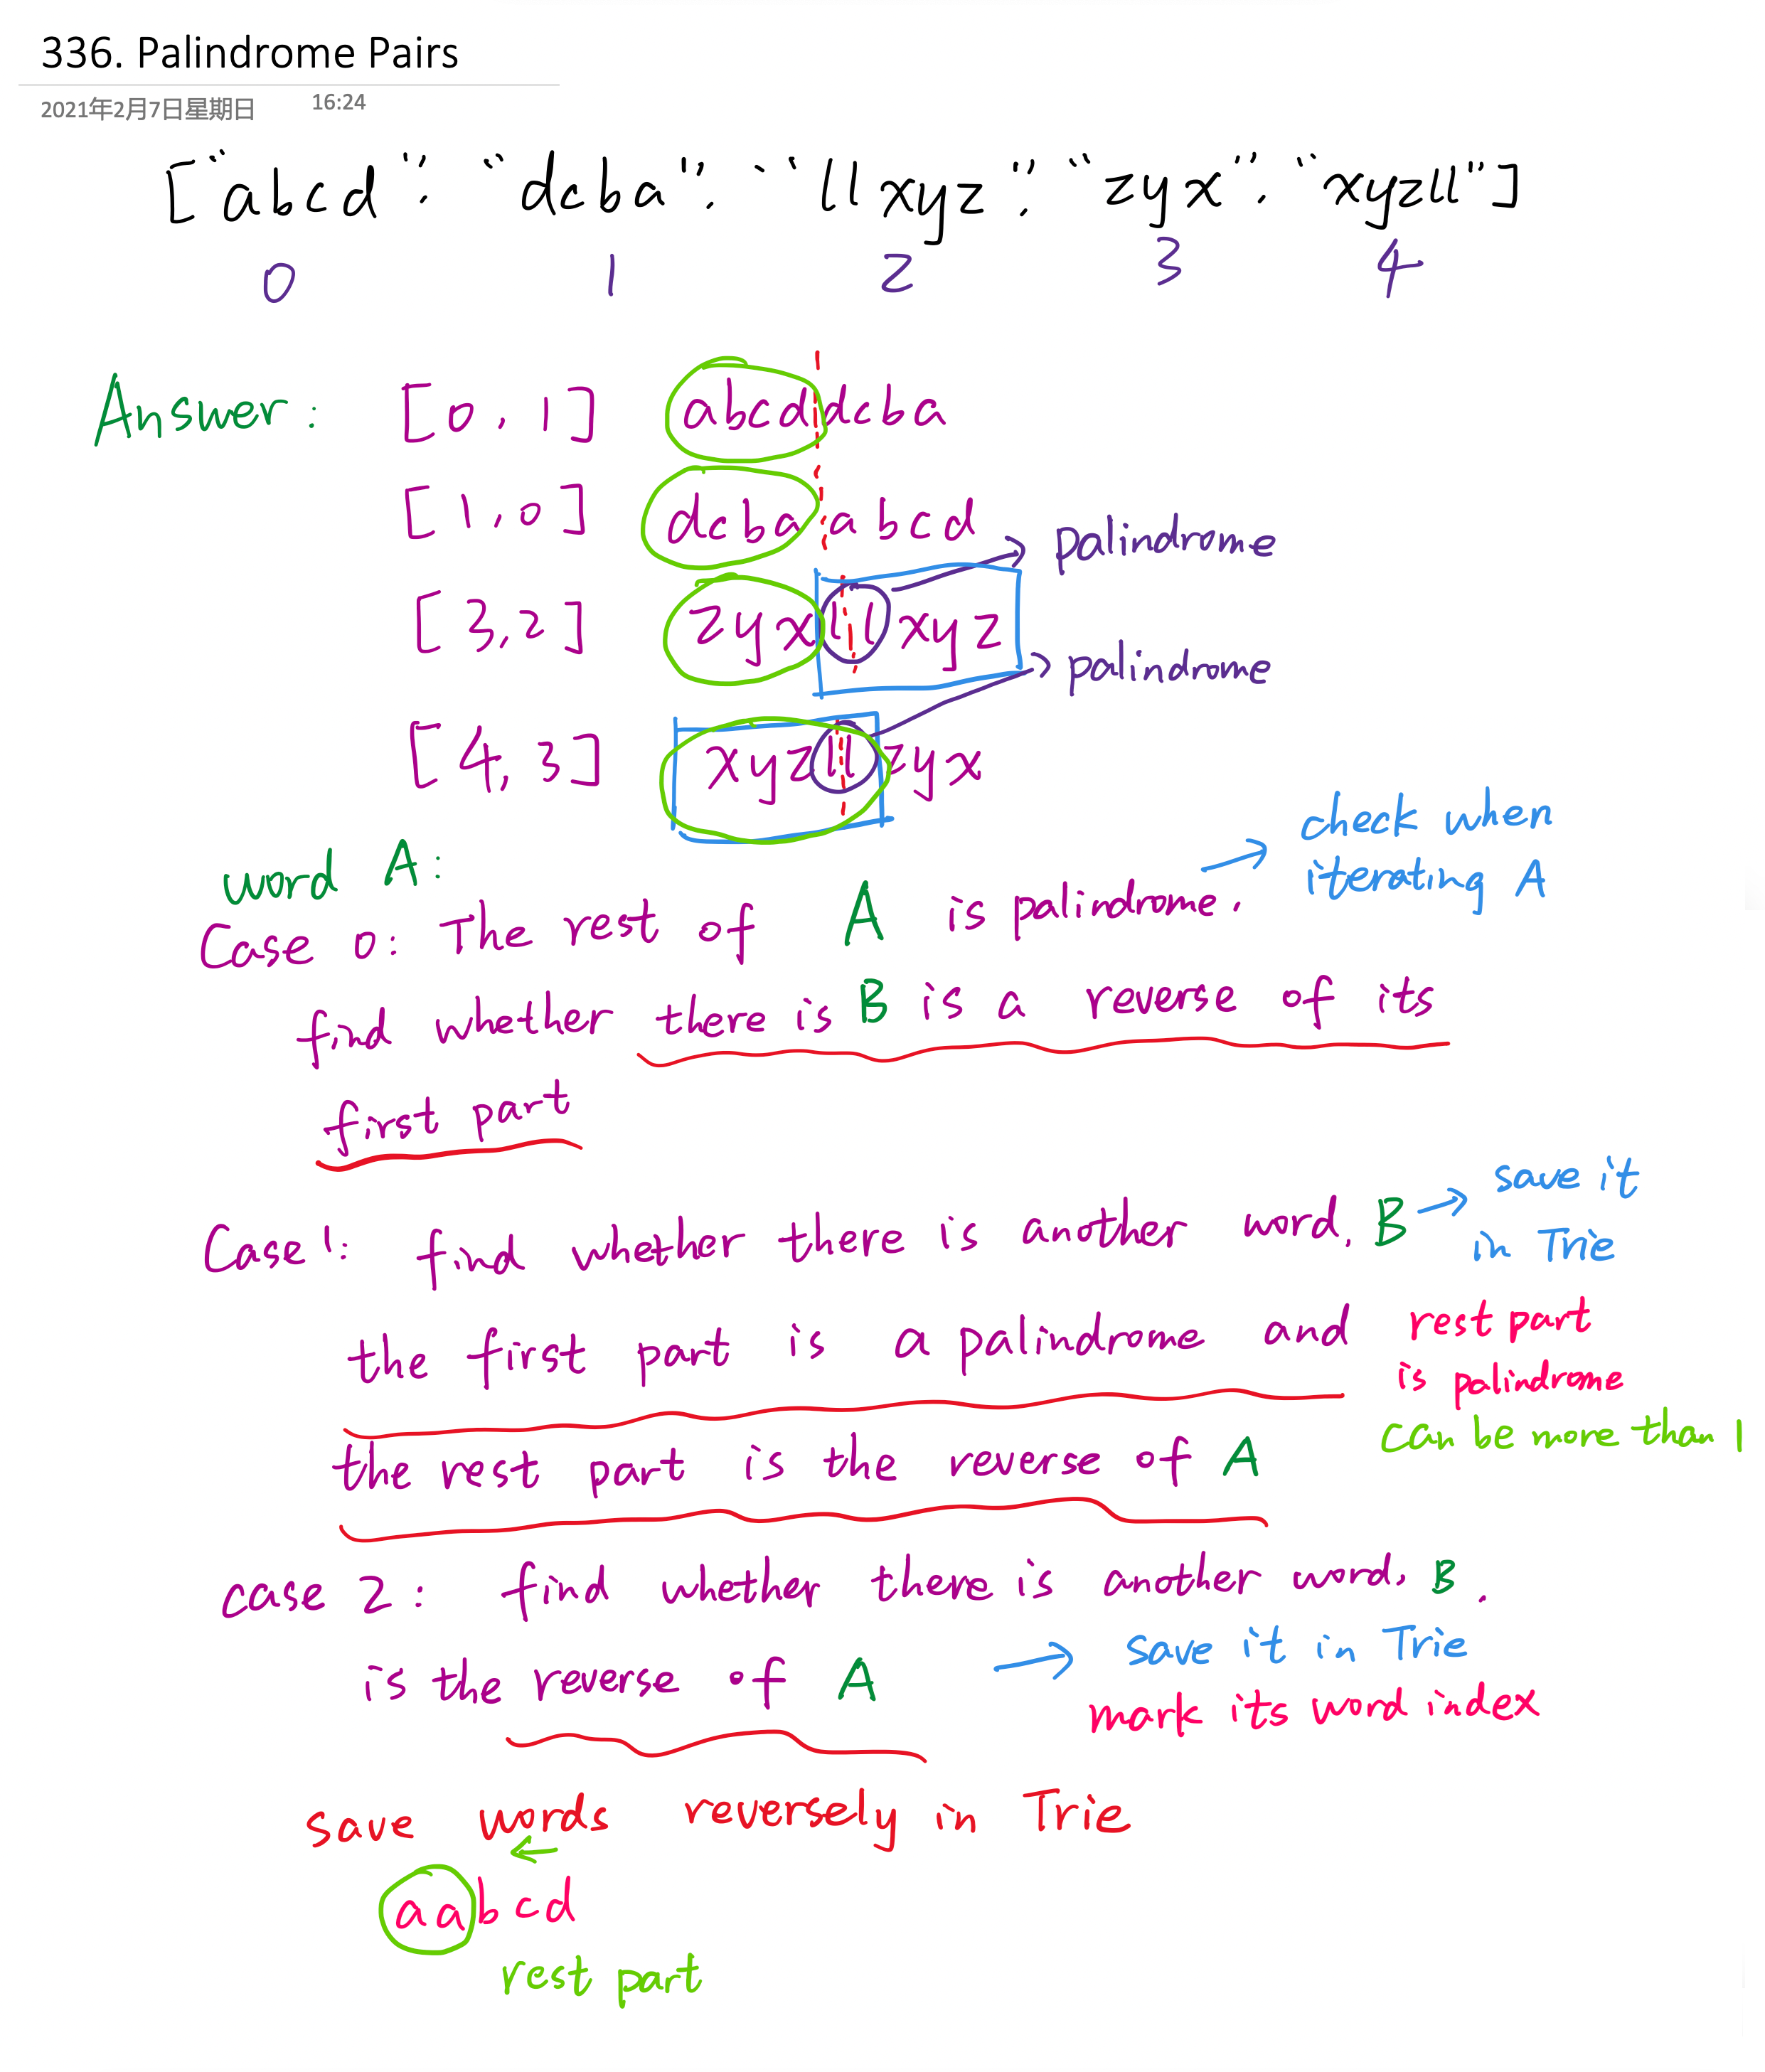 336. Palindrome Pairs
2021年2月7日星期日 16:24
["abcd", "dcba", "llxyz", "zyx", "xyzll"]
0 1 2 3 4
Answer: [0, 1] abcddcba
[1, 0] dcbaabcd
palindrome
[3, 2] zyxllxyz
palindrome
[4, 3] xyzllzyx
check when
iterating A
word A:
Case 0: The rest of A is palindrome.
find whether there is B is a reverse of its
first part
save it
in Trie
Case 1: find whether there is another word, B
the first part is a palindrome and
rest part
is palindrome
can be more than 1
the rest part is the reverse of A
case 2: find whether there is another word, B.
is the reverse of A
save it in Trie
mark its word index
save words reversely in Trie
aabcd
rest part